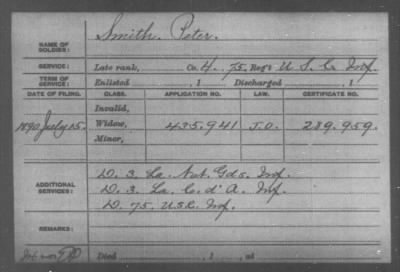 Smith, Peter.
NAME OF SOLDIER:
SERVICE: Late rank, Co. H, 75 Reg't U. S. C. Inf.
TERM OF SERVICE: Enlisted , 1 Discharged , 1
DATE OF FILING. CLASS. APPLICATION NO. LAW. CERTIFICATE NO.
Invalid,
1890 July 15. Widow, 435.941 J.O. 289.959.
Minor,
D. 3. La. Nat. Gds. Inf.
ADDITIONAL SERVICES: D. 3. La. C. d'A. Inf.
D. 75. U.S.C. Inf.
REMARKS:
Died , 1 , at